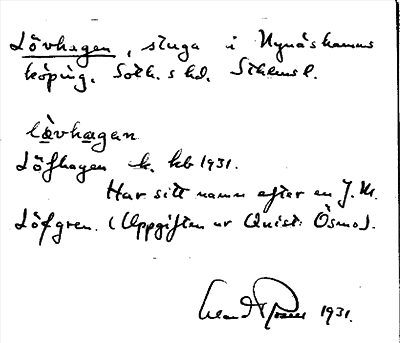 Lövhagen, stuga i Nynäshamns
köping. Soth. s hd. Sthlms l.
lòvhagen
Löfhagen k. kb 1931.
Har sitt namn efter en J. M.
Löfgren. (Uppgiften ur Quist: Ösmo).
1931.